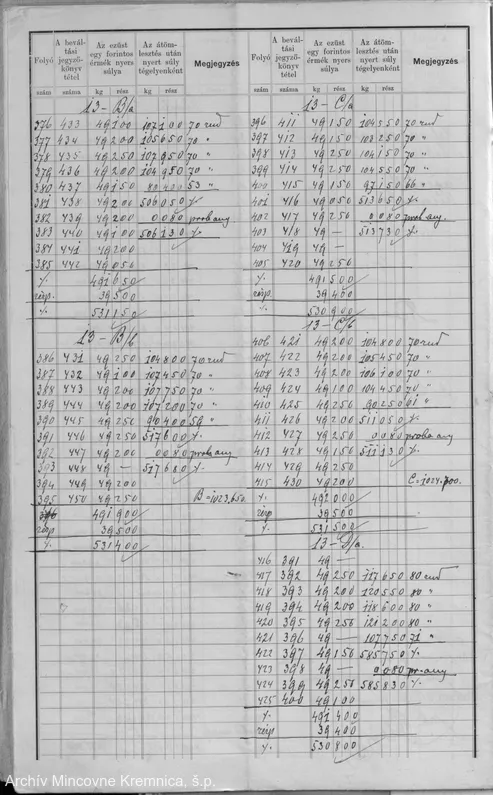 Folyó szám | A beváltási jegyzőkönyv tétel száma | Az ezüst egy forintos érmék nyers súlya kg rész | Az átömlesztés után nyert súly tégelyenként kg rész | Megjegyzés
13 - B/a
376 433 49100 107100 70 rud
377 434 49200 105650 70 "
378 435 49250 107950 70 "
379 436 49200 104950 70 "
380 437 49150 80400 53 "
381 438 49200 506050 %
382 439 49200 0080 prob any
383 440 49100 506130 %
384 441 49200
385 442 49050
%. 491650
39500
%. 531150
13 - B/b
386 431 49250 104800 70 rud
387 432 49100 107450 70 "
388 443 49200 107750 70 "
389 444 49200 107200 70 "
390 445 49250 90400 59 "
391 446 49250 517600 %
392 447 49200 0080 proba any
393 448 49 — 517680 %
394 449 49200
395 450 49250 B = 1023.650
491900
39500
%. 531400
Folyó szám | A beváltási jegyzőkönyv tétel száma | Az ezüst egy forintos érmék nyers súlya kg rész | Az átömlesztés után nyert súly tégelyenként kg rész | Megjegyzés
13 - C/a
396 411 49150 104550 70 rud
397 412 49150 108250 70 "
398 413 49250 104150 70 "
399 414 49250 104550 70 "
400 415 49150 97150 66 "
401 416 49050 513650 %
402 417 49250 0080 prob any.
403 418 49 — 513730 %
404 419 49 —
405 420 49250
%. 491500
39400
%. 530900
13 - C/b
406 421 49200 104800 70 rud
407 422 49200 105450 70 "
408 423 49200 106100 70 "
409 424 49100 104450 70 "
410 425 49250 90250 61 "
411 426 49200 511050 %
412 427 49250 0080 proba any
413 428 49150 511130 %
414 429 49250
415 430 49200 C = 1024.700.
%. 492000
39500
%. 531500
13 - D/a.
416 391 49 —
417 392 49250 117650 80 rud
418 393 49200 120550 80 "
419 394 49200 118600 80 "
420 395 49250 121200 80 "
421 396 49 — 107750 71 "
422 397 49150 585750 %
423 398 49 — 0080 pr. any
424 399 49250 585830 %
425 400 49100
%. 491400
39400
%. 530800
Archív Mincovne Kremnica, š.p.